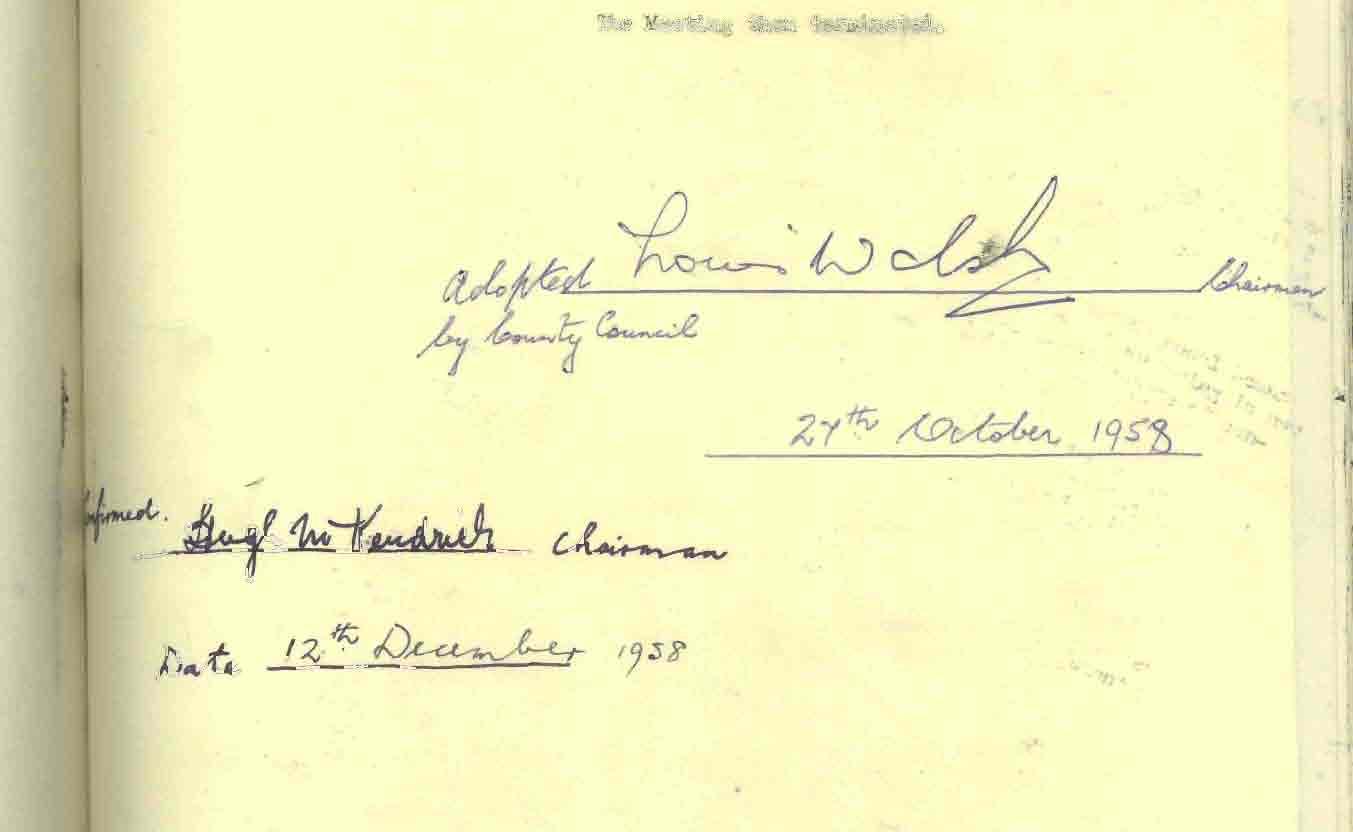 The Meeting then terminated.
Adopted Louis Walsh Chairman
by County Council
27th October 1958
Confirmed. Hugh McKendrick Chairman
Date 12th December 1958